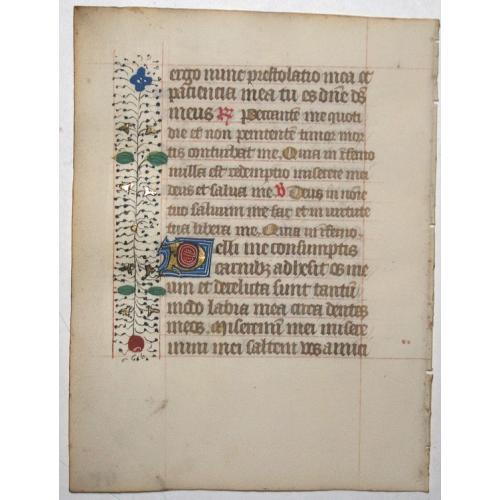 ergo nunc prestolatio mea et
paciencia mea tu es dñe ds
meus R Peccantẽ me quoti
die et non penitentẽ timor mor
tis conturbat me. Quia in īferno
nulla est redemptio miserere mei
deus et salua me V Deus in noīe
tuo saluum me fac et in uirtute
tua libera me. Quia in īferno.
Pelli mee consumptis
carnibz adhesit os me
um et derelicta sunt tantū
mō labia mea circa dentes
meos. Miseremī mei misere
mini mei saltem vos amici